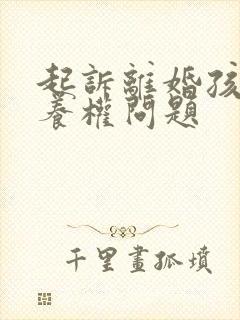 起訴離婚孩
養權問題
千里畫孤墳